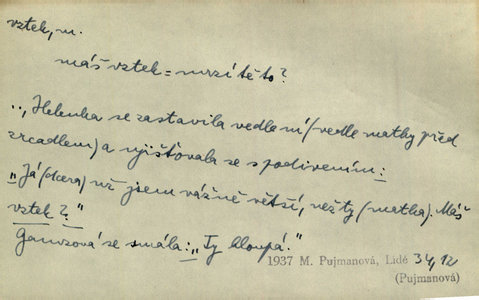 vztek, m.
máš vztek = mrzí tě to?
„Helenka se zastavila vedle ní (vedle matky před
zrcadlem) a ujišťovala se s podivením:
„Já (dcera) už jsem vážně větší, než ty (matka). Máš
vztek?"
Gamzová se smála: „Ty hloupá."
1937 M. Pujmanová, Lidé 34,12
(Pujmanová)